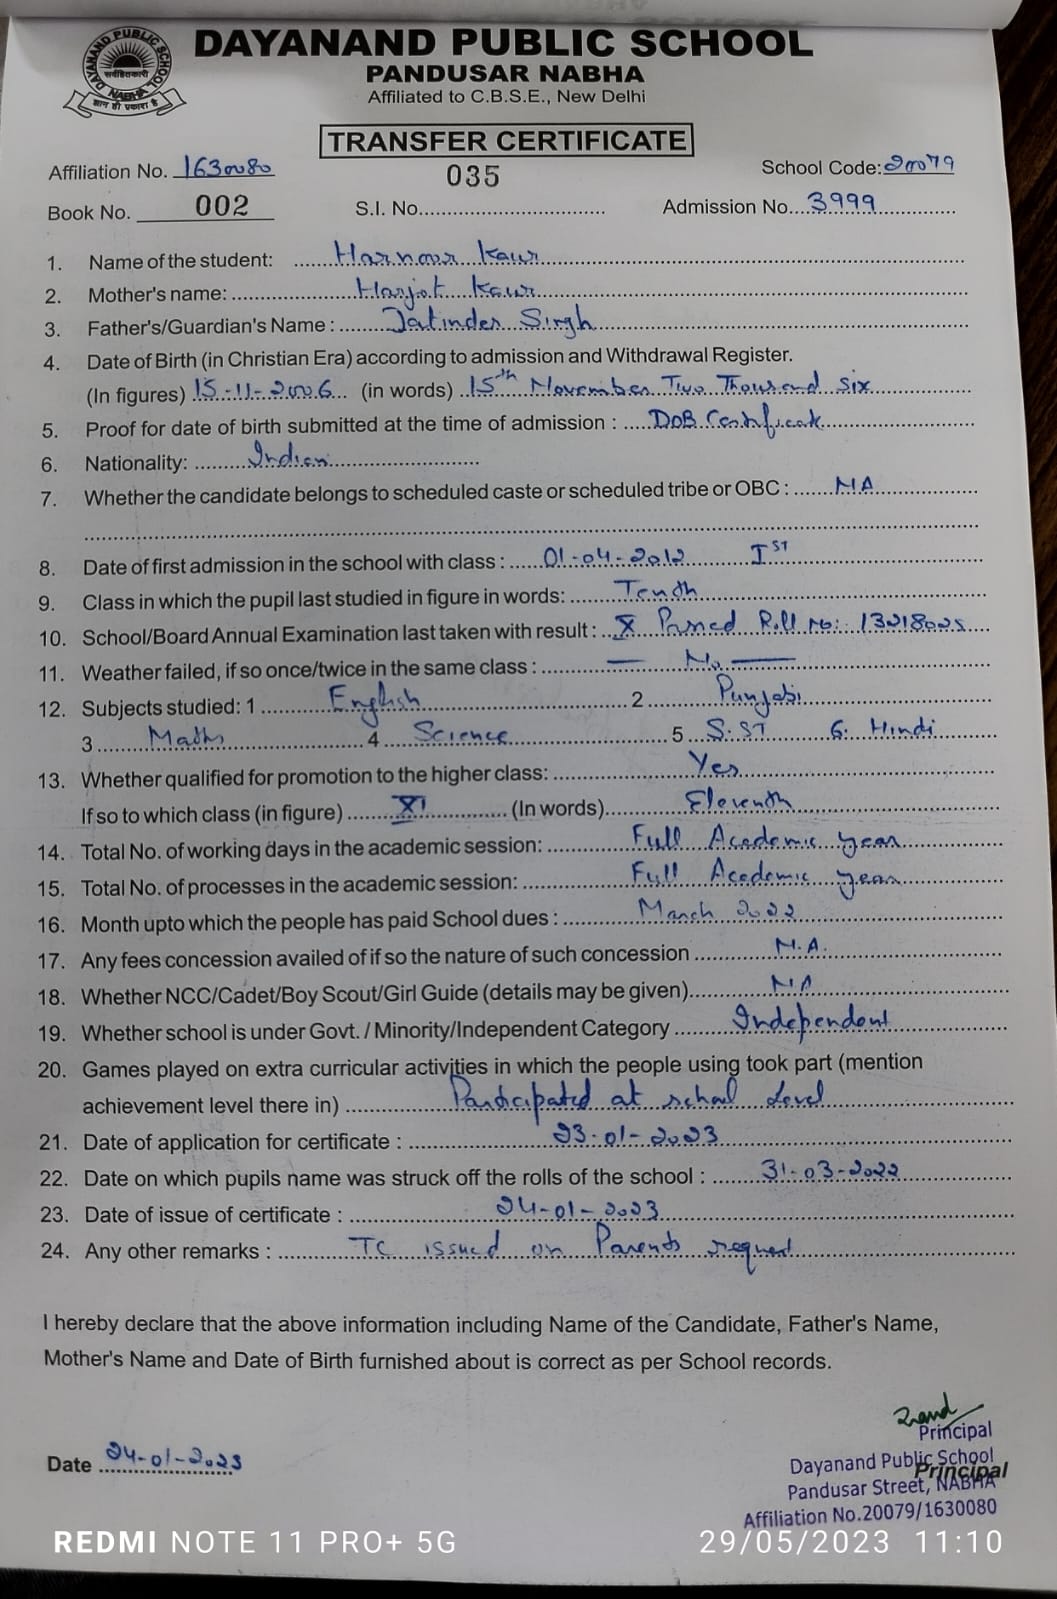 DAYANAND PUBLIC SCHOOL
NABHA
सर्वहितकारी
ज्ञान ही प्रकाश है
DAYANAND PUBLIC SCHOOL
PANDUSAR NABHA
Affiliated to C.B.S.E., New Delhi
TRANSFER CERTIFICATE
Affiliation No. 1630080 035 School Code: 20079
Book No. 002 S.I. No. Admission No. 3999
1. Name of the student: Harnoor Kaur
2. Mother's name: Harjot Kaur
3. Father's/Guardian's Name : Jatinder Singh
4. Date of Birth (in Christian Era) according to admission and Withdrawal Register.
(In figures) 15-11-2006 (in words) 15th November Two Thousand Six
5. Proof for date of birth submitted at the time of admission : DOB Certificate
6. Nationality: Indian
7. Whether the candidate belongs to scheduled caste or scheduled tribe or OBC : NA
8. Date of first admission in the school with class : 01-04-2012 IST
9. Class in which the pupil last studied in figure in words: Tenth
10. School/Board Annual Examination last taken with result : X Passed Roll No: 13218025
11. Weather failed, if so once/twice in the same class : — No —
12. Subjects studied: 1 English 2 Punjabi
3 Maths 4 Science 5 S.ST 6. Hindi
13. Whether qualified for promotion to the higher class: Yes
If so to which class (in figure) XI (In words) Eleventh
14. Total No. of working days in the academic session: Full Academic year
15. Total No. of processes in the academic session: Full Academic year
16. Month upto which the people has paid School dues : March 2022
17. Any fees concession availed of if so the nature of such concession N.A.
18. Whether NCC/Cadet/Boy Scout/Girl Guide (details may be given) NA
19. Whether school is under Govt. / Minority/Independent Category Independent
20. Games played on extra curricular activities in which the people using took part (mention
achievement level there in) Participated at school Level
21. Date of application for certificate : 23-01-2023
22. Date on which pupils name was struck off the rolls of the school : 31-03-2022
23. Date of issue of certificate : 24-01-2023
24. Any other remarks : TC issued on Parents request
I hereby declare that the above information including Name of the Candidate, Father's Name,
Mother's Name and Date of Birth furnished about is correct as per School records.
Principal
Dayanand Public School
Principal
Date 24-01-2023
Pandusar Street, NABHA
Affiliation No.20079/1630080
REDMI NOTE 11 PRO+ 5G 29/05/2023 11:10